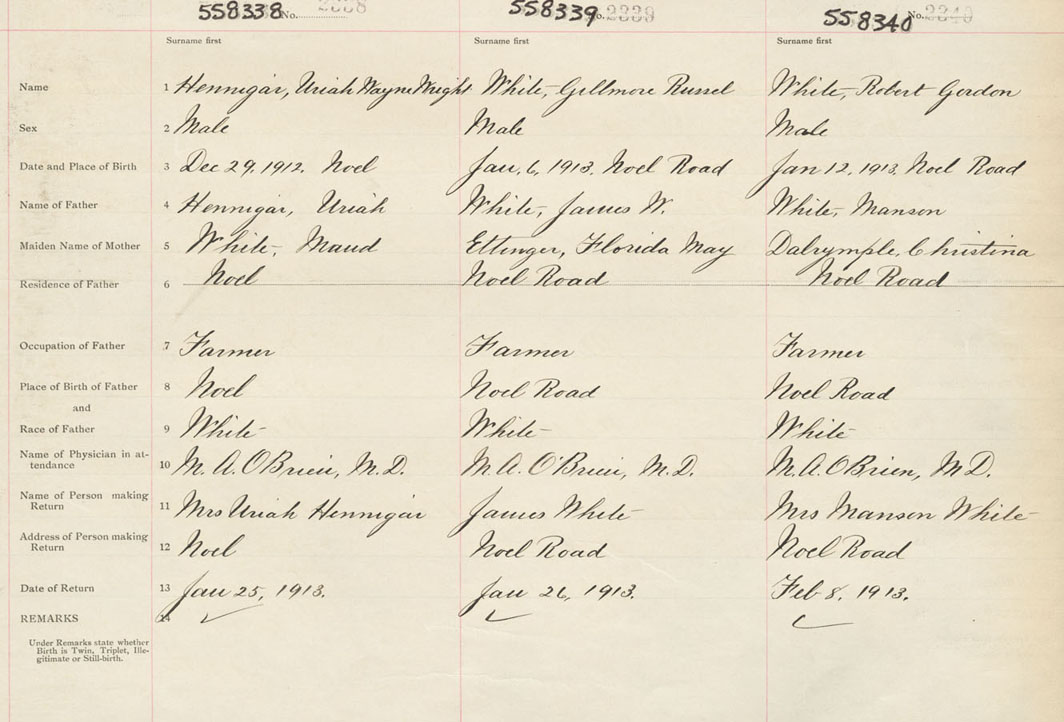 558338 No. 2338 558339 No. 2339 558340 No. 2340
Surname first Surname first Surname first
Name 1 Hennigar, Uriah Wayne Wright White, Gillmore Russel White, Robert Gordon
Sex 2 Male Male Male
Date and Place of Birth 3 Dec 29, 1912. Noel Jan, 6, 1913. Noel Road Jan 12, 1913, Noel Road
Name of Father 4 Hennigar, Uriah White, James W. White, Manson
Maiden Name of Mother 5 White, Maud Ettinger, Florida May Dalrymple, Christina
Residence of Father 6 Noel Noel Road Noel Road
Occupation of Father 7 Farmer Farmer Farmer
Place of Birth of Father 8 Noel Noel Road Noel Road
and
Race of Father 9 White White White
Name of Physician in at-
tendance 10 M. A. O'Brien, M.D. M. A. O'Brien, M.D. M. A. O'Brien, M.D.
Name of Person making
Return 11 Mrs Uriah Hennigar James White Mrs Manson White
Address of Person making
Return 12 Noel Noel Road Noel Road
Date of Return 13 Jan 25, 1913. Jan 26, 1913. Feb 8, 1913.
REMARKS 14
Under Remarks state whether
Birth is Twin, Triplet, Ille-
gitimate or Still-birth.